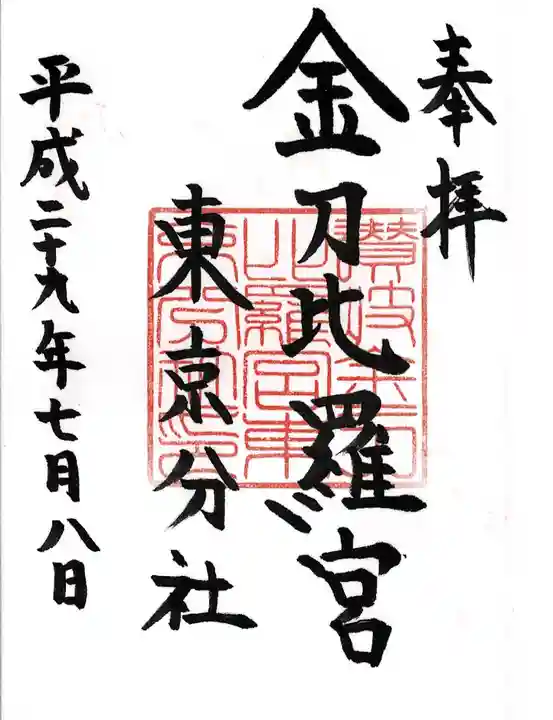 奉拝
金刀比羅宮
東京分社
平成二十九年七月八日
讃岐金刀
比羅宮東
京分社印